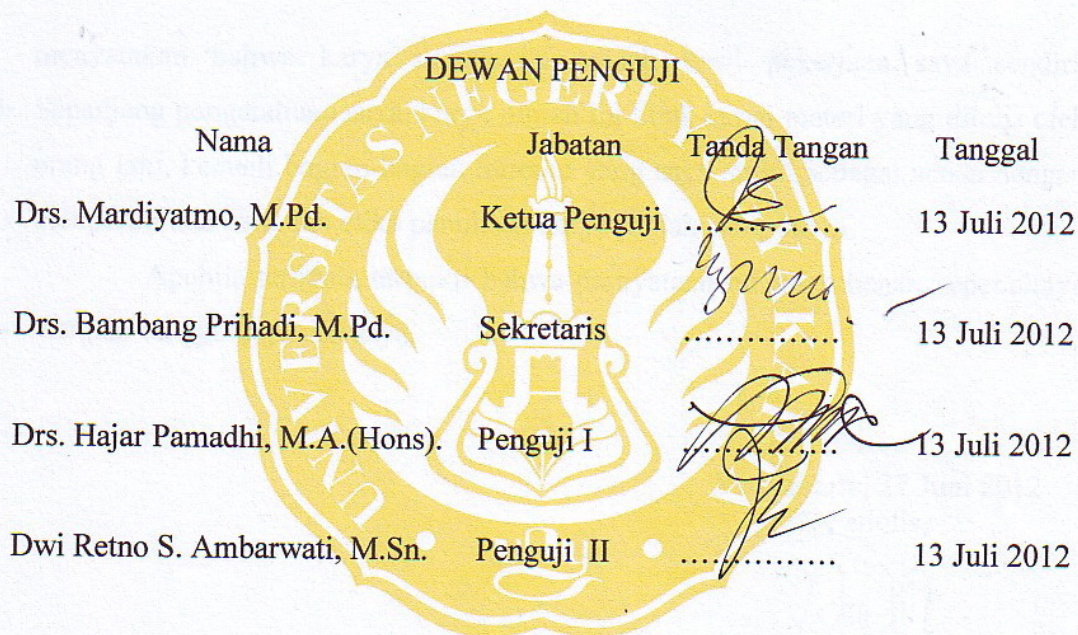 DEWAN PENGUJI
Nama Jabatan Tanda Tangan Tanggal
Drs. Mardiyatmo, M.Pd. Ketua Penguji ............... 13 Juli 2012
Drs. Bambang Prihadi, M.Pd. Sekretaris ............... 13 Juli 2012
Drs. Hajar Pamadhi, M.A.(Hons). Penguji I ............... 13 Juli 2012
Dwi Retno S. Ambarwati, M.Sn. Penguji II ............... 13 Juli 2012
UNIVERSITAS NEGERI YOGYAKARTA